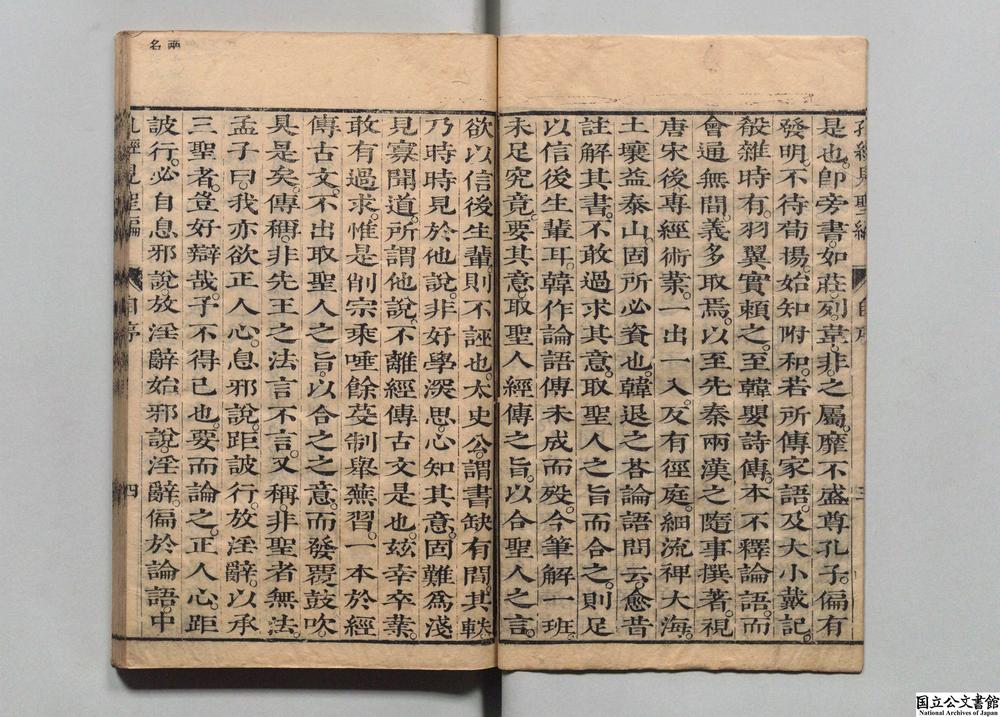 是也。卽旁書。如莊列韋非。之屬。靡不盛尊孔子。偏有
發明。不待荀揚。始知附和。若所傳家語。及大小戴記。
殽雜時有。羽翼實賴之。至韓嬰詩傳。本不釋論語。而
會通無間。義多取焉。以至先秦兩漢之隨事撰著。視
唐宋後專經術業。一出一入。反有徑庭。細流裨大海。
土壤益泰山。固所必資也。韓退之荅論語問云。愈昔
註解其書。不敢過求其意。取聖人之旨而合之。則足
以信後生輩耳。韓作論語傳未成而歿。今筆解一班。
未足究竟。要其意。取聖人經傳之旨。以合聖人之言。
欲以信後生輩。則不誣也。太史公謂書缺有間。其軼
乃時時見於他說。非好學深思。心知其意。固難爲淺
見寡聞道。所謂他說。不離經傳古文是也。玆幸卒業。
敢有過求。惟是削宗乘唾餘。芟制舉蕪習。一本於經
傳古文。不出取聖人之旨。以合之之意。而發覆鼓吹
具是矣。傳稱。非先王之法言不言。又稱。非聖者無法。
孟子曰。我亦欲正人心。息邪說。距詖行。放淫辭。以承
三聖者。豈好辯哉。予不得已也。要而論之。正人心。距
詖行。必自息邪說放淫辭始。邪說。淫辭。偏於論語。中
自序
四
名 兩
国立公文書館
National Archives of Japan